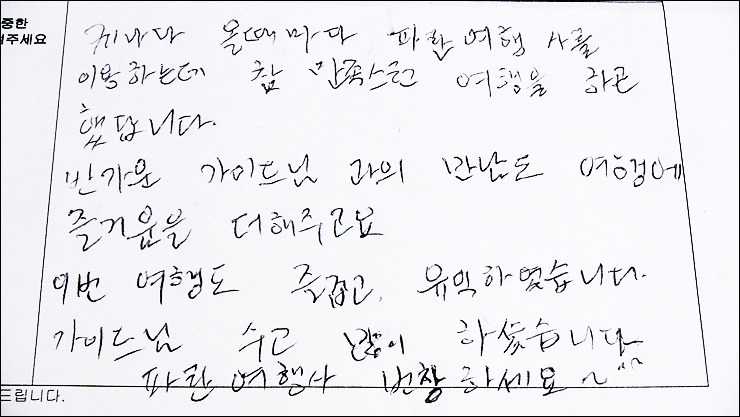 중한
겨주세요
캐나다 올때마다 파란여행사를
이용하는데 참 만족스런 여행을 하곤
했답니다.
반가운 가이드님과의 만남도 여행에
즐거움을 더해주고요
이번 여행도 즐겁고, 유익하였습니다.
가이드님 수고 많이 하셨습니다
파란여행사 번창하세요~
드립니다.